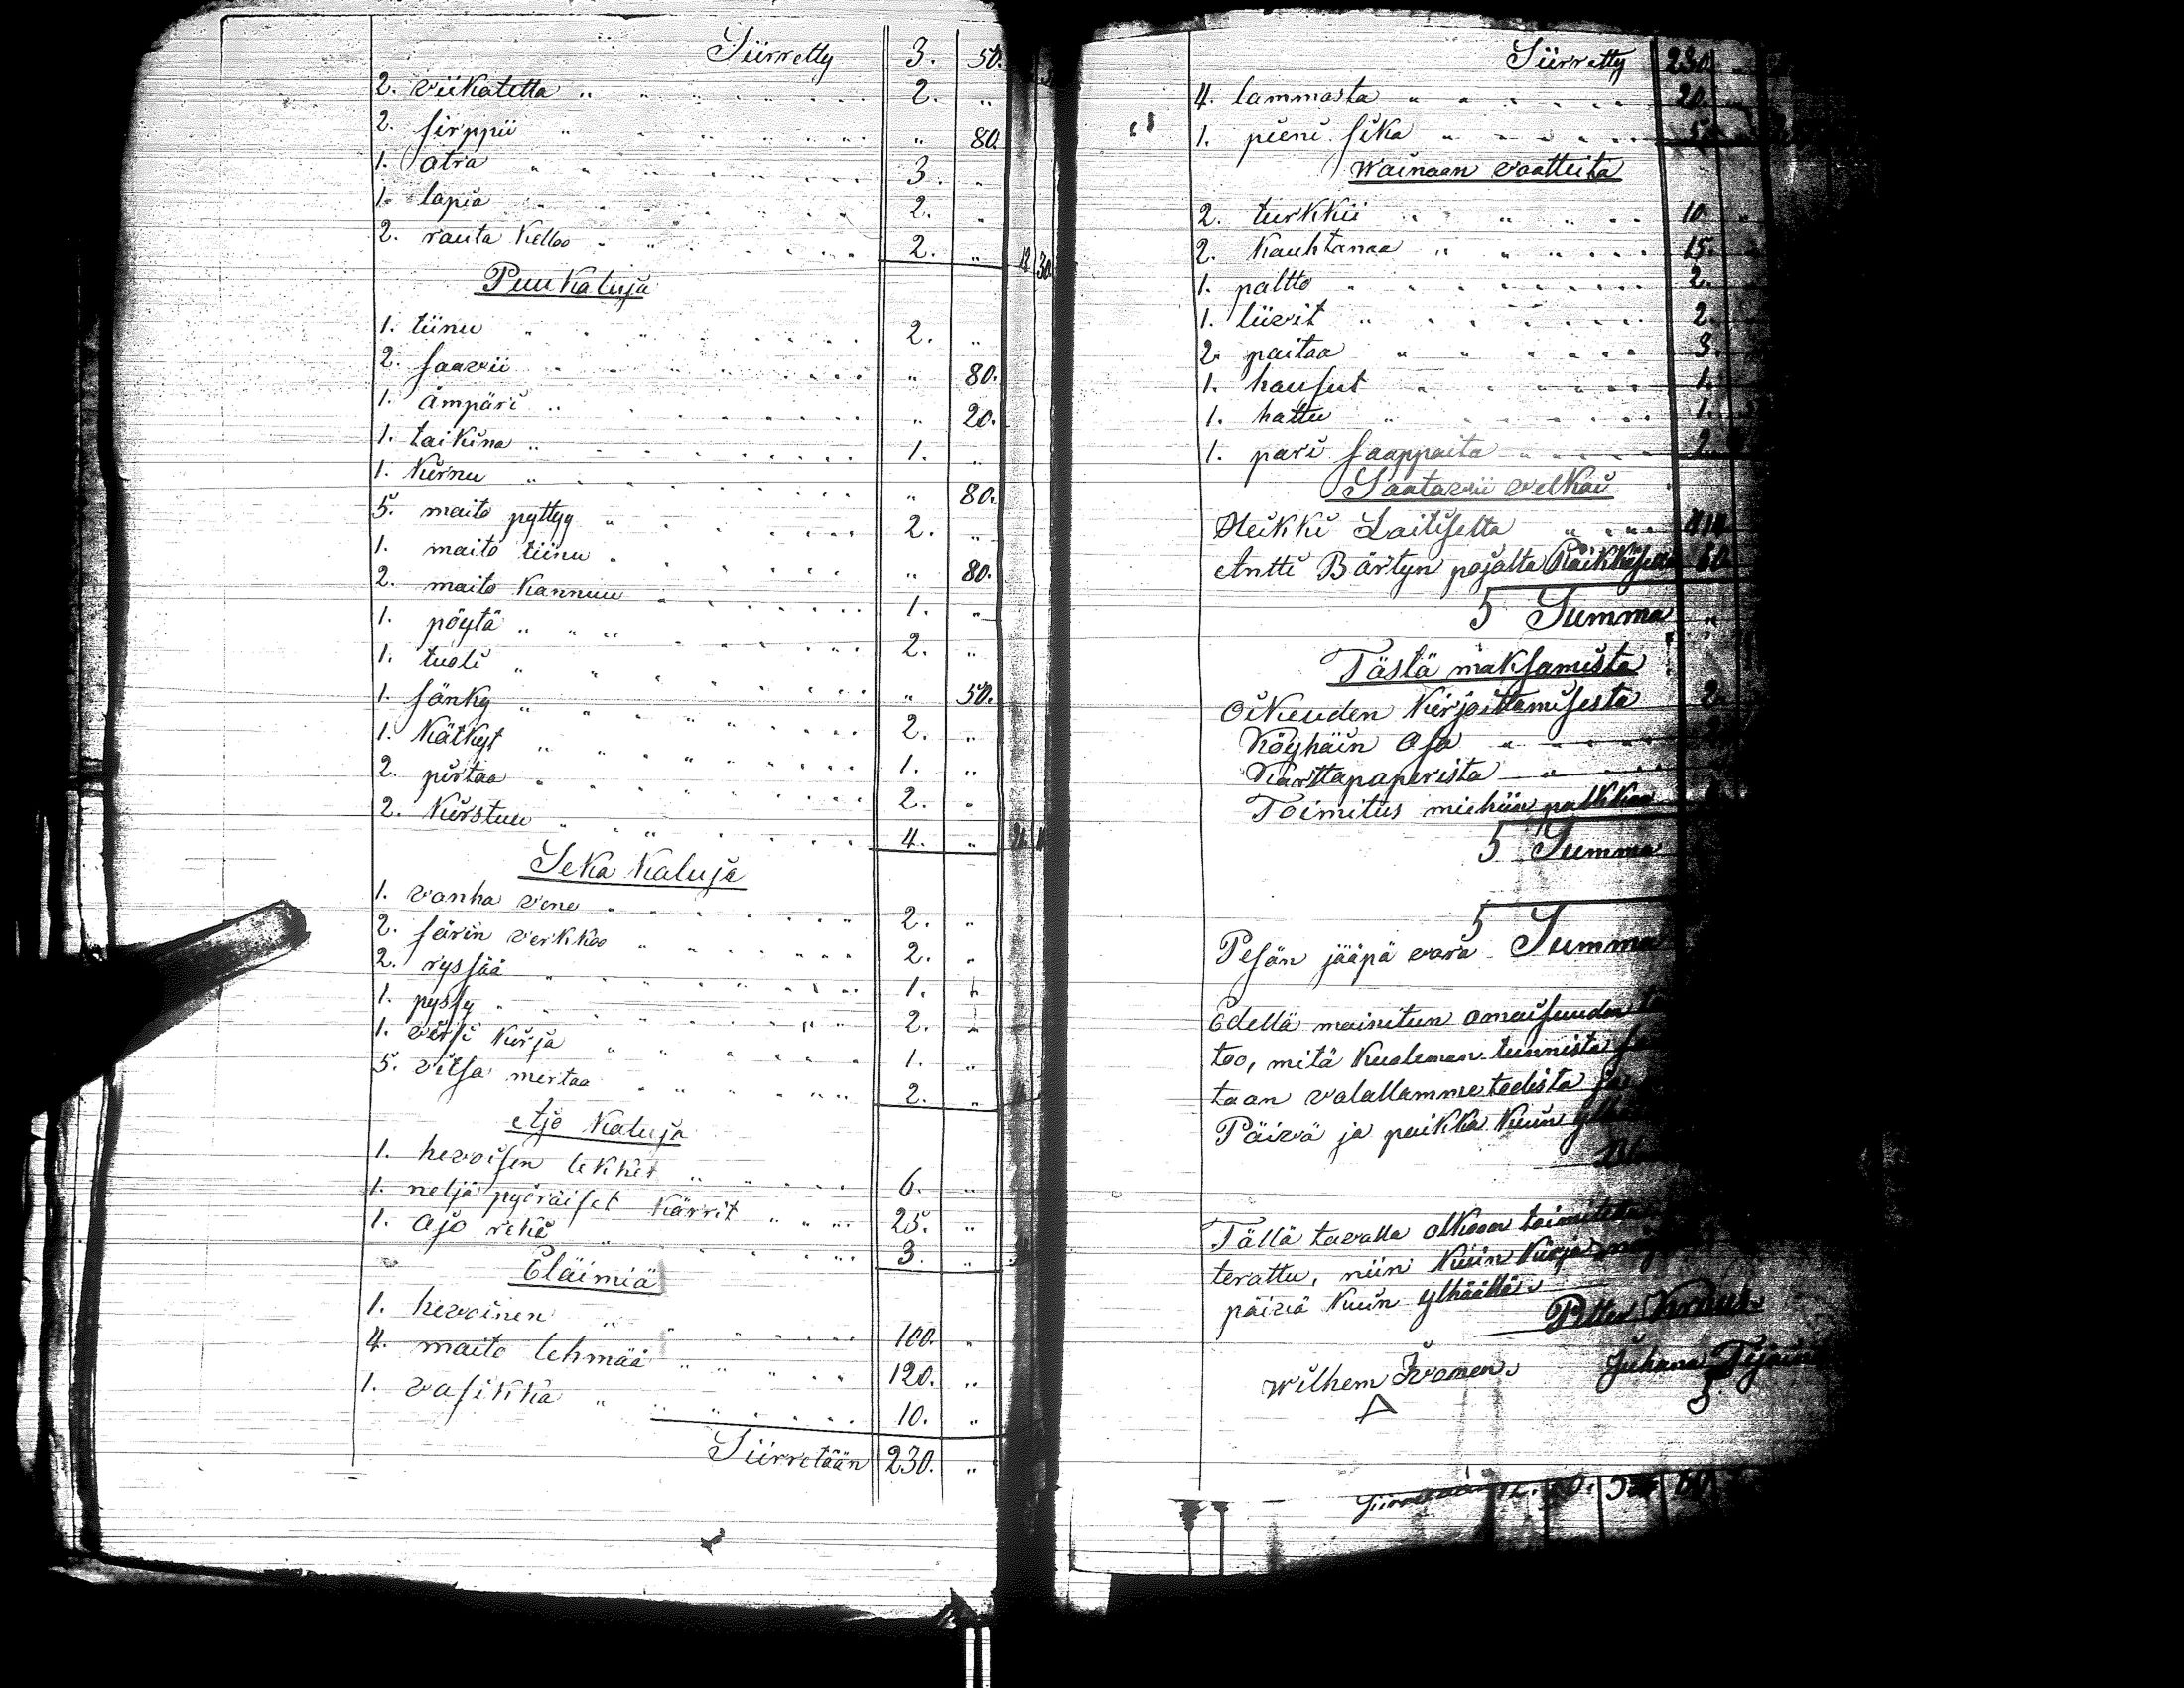 Siirretty 3. 50.
2. viikatetta " " 2. "
2. sirppii " " " 80.
1. atra " " 3. "
1. lapia " " 2. "
2. rauta kelloo " " 2. " 13 30
Puu kaluja
1. tiinu " " 2. "
2. saavii " " " 80.
1. ämpäri " " " 20.
1. taikina " " 1. "
1. kirnu " " " 80.
5. maito pyttyy " " 2. "
1. maito tiinu " " " 80.
2. maito kannuu " " 1. "
1. pöytä " " 2. "
1. tuoli " " " 50.
1. sänky " " 2. "
1. kätkyt " " 1. "
2. pirtaa " " 2. "
2. kirstuu " " 4. "
Seka kaluja
1. vanha vene " " 2. "
2. särin verkkoo " " 2. "
2. ryssää " " 1. "
1. pyssy " " 2. "
1. virsi kirja " " 1. "
5. vitsa mertaa " " 2. "
Ajo kaluja
1. hevoisen lekker " " 6. "
1. neljä pyöräiset kärrit " " 25. "
1. ajo reki " " 3. "
Eläimiä
1. hevoinen " " 100. "
4. maito lehmää " " 120. "
1. vasikka " " 10. "
Siirretään 230. "
Siirretty 230.
4. lammasta " " 20.
1. pieni sika " " 5.
Wainaan vaatteita
2. turkkii " " 10.
2. kauhtanaa " " 15.
1. paltto " " 2.
1. liivit " " 2.
2. paitaa " " 3.
1. housut " " 1.
1. hattu " " 1.
1. pari saappaita " " 2.
Saatavii velkoi
Heikki Laitiselta " "
Antti Bärtyn pojalta 60
S Summa
Tästä maksamista
Oikeuden kirjoittamisesta 2.
Köyhäin osa "
Karttapaperista "
Toimitus miehiin palkkaa
S Summa
S Summa
Pesän jääpä vara
Edellä mainitun omaisuuden
too, mitä kuoleman tunnista
taan valallamme todista
Päivä ja paikka kuin
Tällä tavalla olkoon
terattu, niin kuin
päivä kuin ylhäällä
Petter
Wilhem Ivonen. Juhana